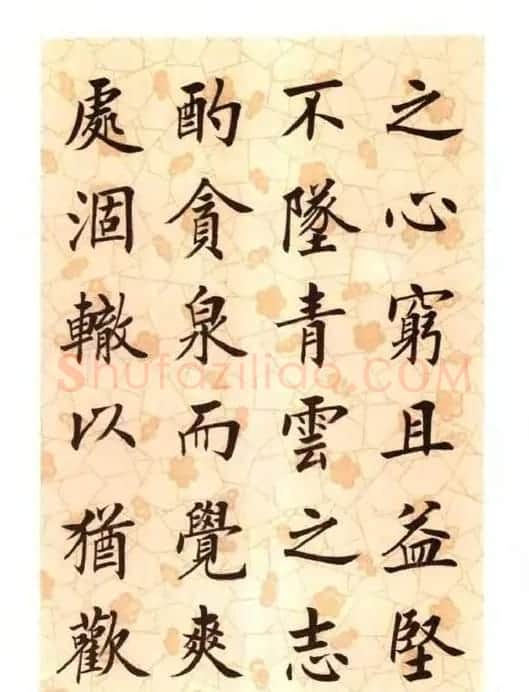 之心窮且益堅
不墜青雲之志
酌貪泉而覺爽
處涸轍以猶歡
Shufaziliao.COM